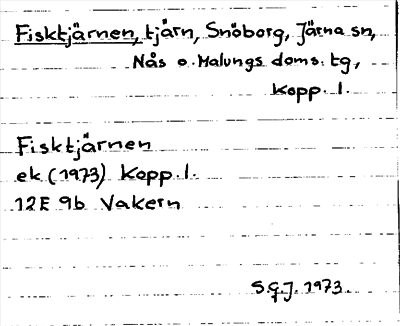 Fisktjärnen, tjärn, Snöborg, Järna sn,
Nås o. Malungs doms. tg,
Kopp. l.
Fisktjärnen
ek (1973) Kopp. l.
12E 9b Vakern
S.G.J. 1973